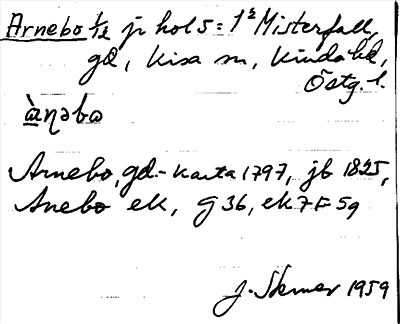 Arnebo 1/2 jr hol 5: 1½ Misterfall,
gd, Kisa sn, Kinda hd,
Östg. l.
ànəbo
Arnebo, gd.- Karta 1797, jb 1825,
Anebo ek, G 36, ek 7 F 5g
J. Stemer 1959